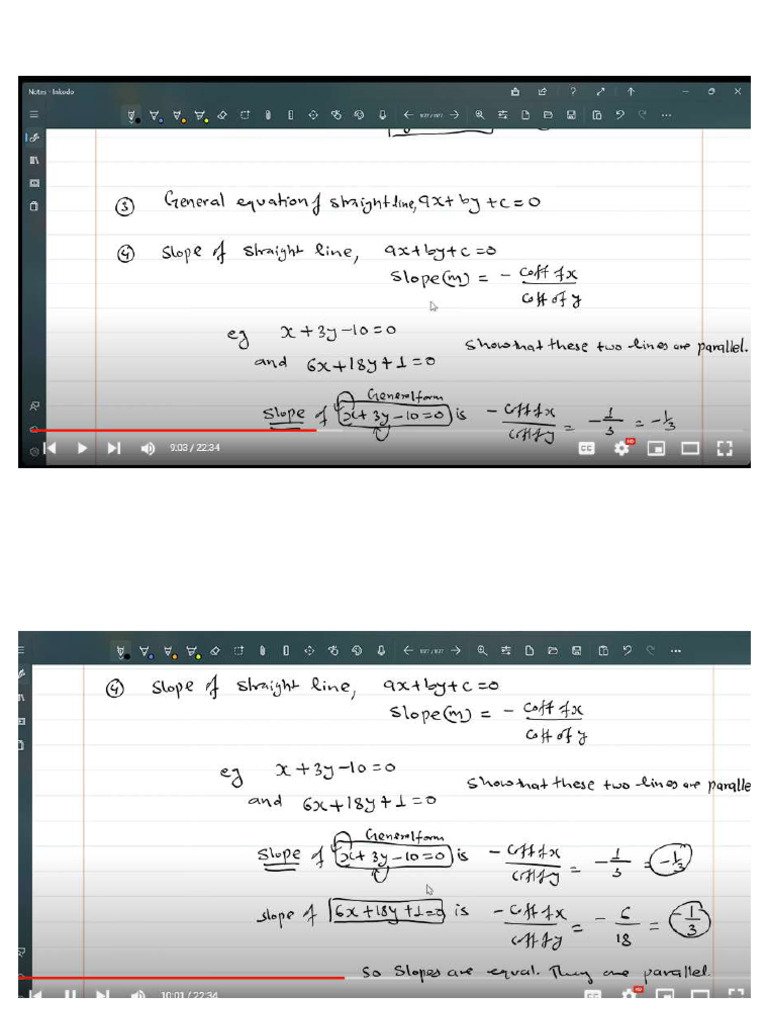 Notes - Inkodo
③ General equation of straight line, ax + by + c = 0
④ Slope of straight line, ax + by + c = 0
Slope(m) = - coff of x / coff of y
eg x + 3y - 10 = 0
and 6x + 18y + 1 = 0 Show that these two lines are parallel.
General form
Slope of x + 3y - 10 = 0 is - coff of x / coff of y = - 1/3 = -1/3
9:03 / 22:34
CC HD
④ Slope of straight line, ax + by + c = 0
Slope(m) = - coff of x / coff of y
eg x + 3y - 10 = 0
and 6x + 18y + 1 = 0 Show that these two lines are paralle
General form
Slope of x + 3y - 10 = 0 is - coff of x / coff of y = - 1/3 = -1/3
slope of 6x + 18y + 1 = 0 is - coff of x / coff of y = - 6/18 = -1/3
So Slopes are equal. They are parallel.
10:01 / 22:34